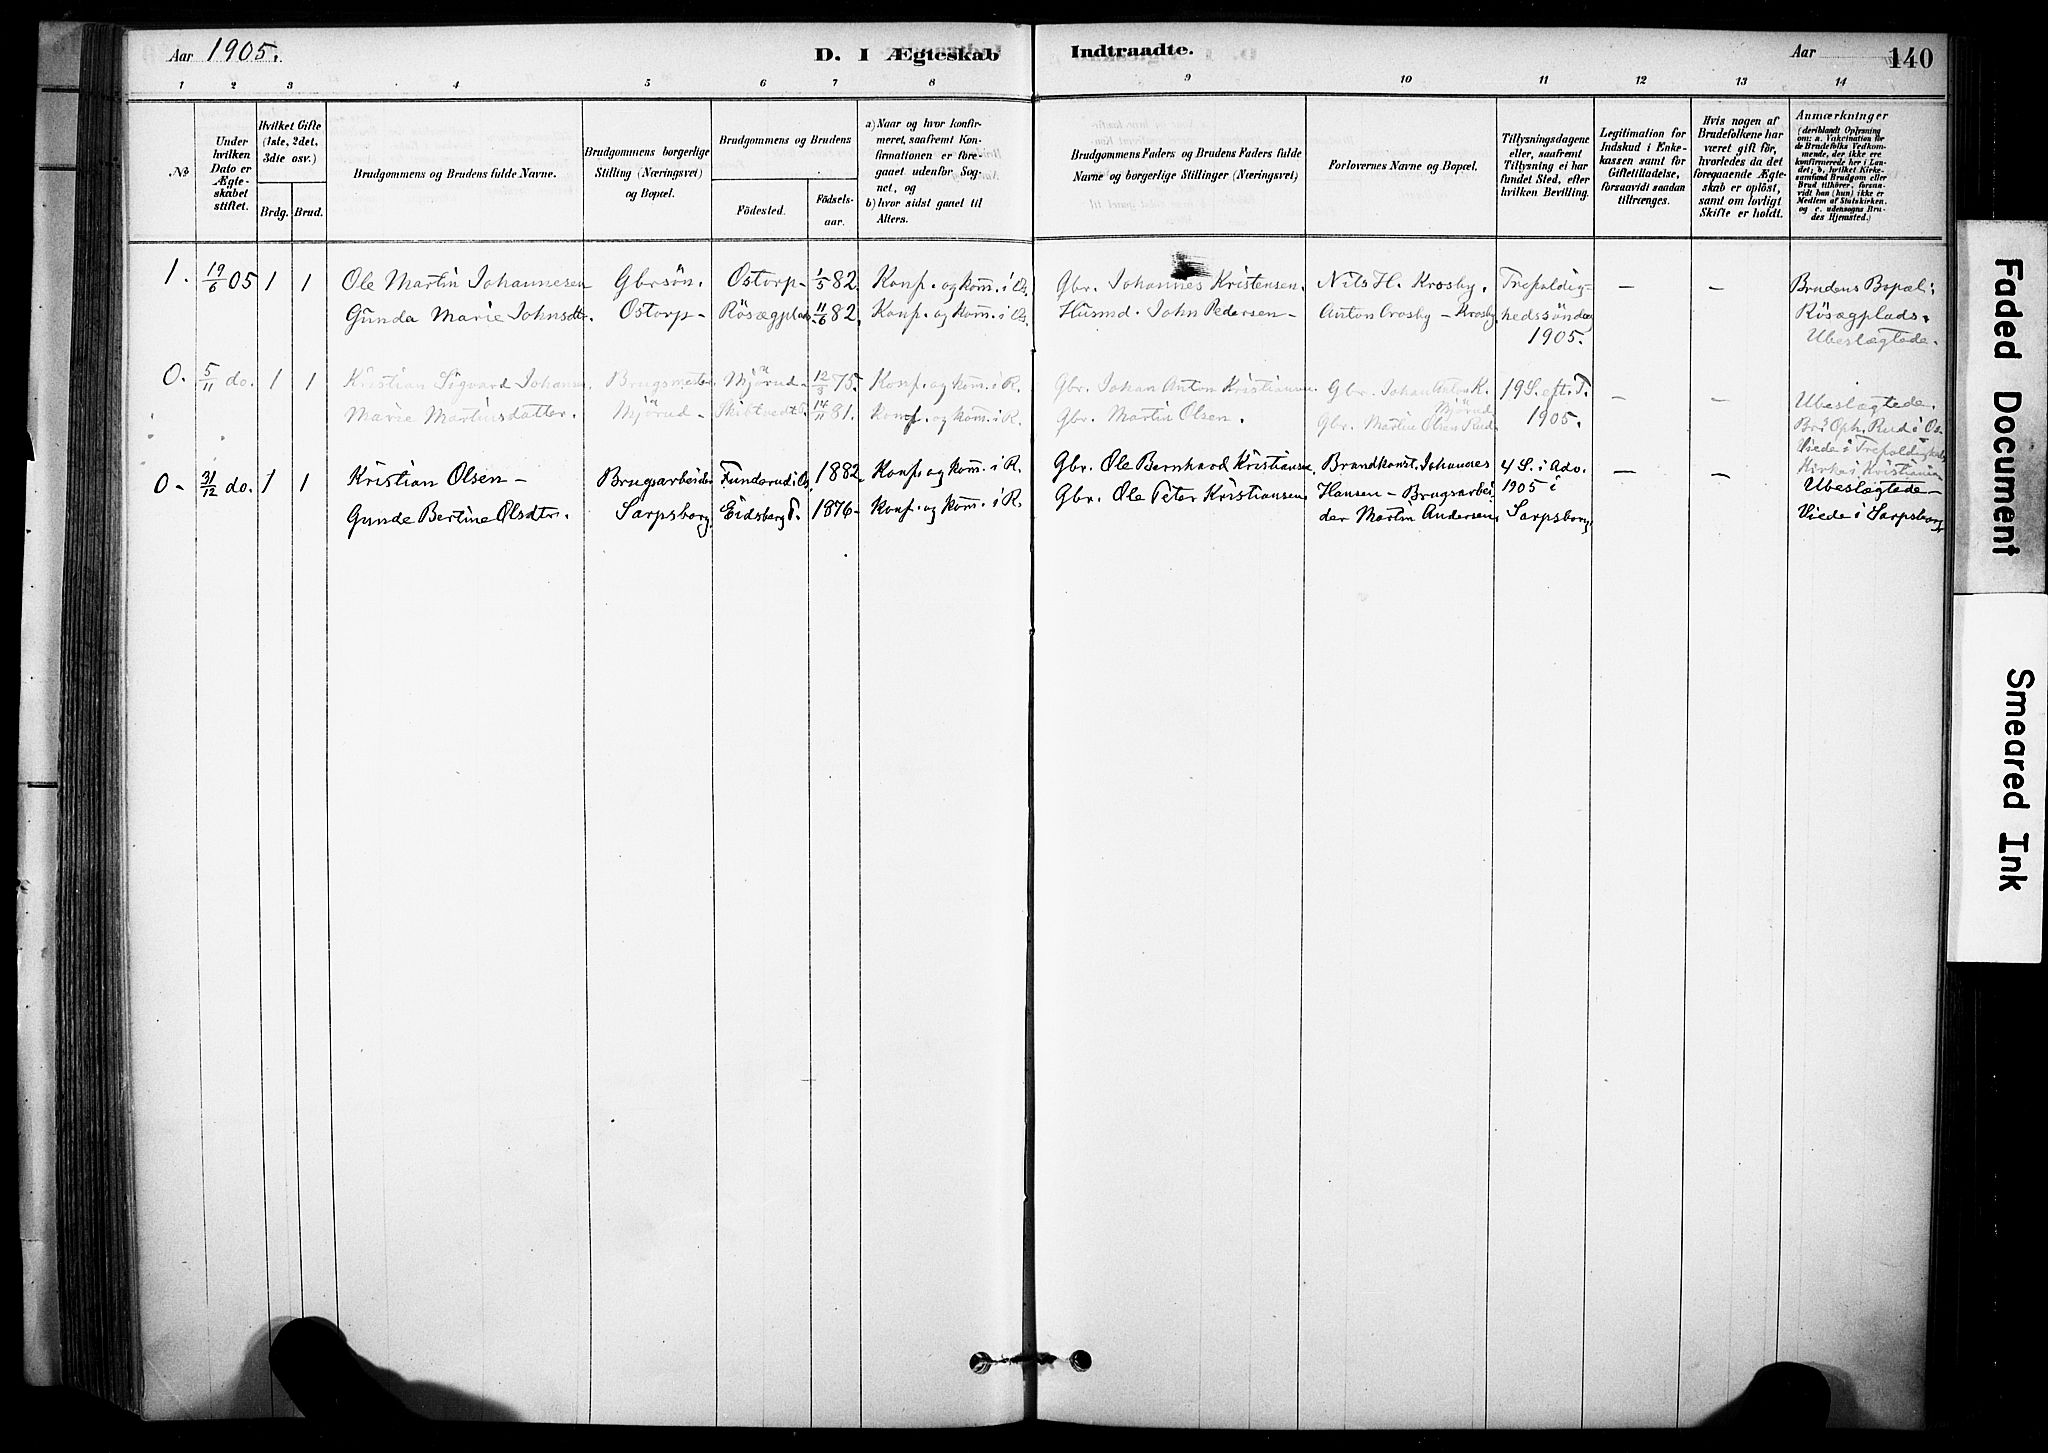 Aar 1905.
D. I Ægteskab Indtraadte.
Aar 140
1 2 3 4 5 6 7 8 9 10 11 12 13 14
No
Under hvilken Dato er Ægteskabet stiftet.
Hvilket Gifte (1ste, 2det, 3die osv.)
Brdg. Brud.
Brudgommens og Brudens fulde Navne.
Brudgommens borgerlige Stilling (Næringsvei) og Bopæl.
Brudgommens og Brudens
Fødested. Fødselsaar.
a) Naar og hvor konfirmeret, saafremt Konfirmationen er foregaaet udenfor Sognet, og
b) hvor sidst gaaet til Alters.
Brudgommens Faders og Brudens Faders fulde Navne og borgerlige Stillinger (Næringsvei)
Forlovernes Navne og Bopæl.
Tillysningsdagene eller, saafremt Tillysning ei har fundet Sted, efter hvilken Bevilling.
Legitimation for Indskud i Enkekassen samt for Giftetilladelse, forsaavidt saadan tiltrænges.
Hvis nogen af Brudefolkene har været gift før, hvorledes da det foregaaende Ægteskab er opløst, samt om lovligt Skifte er holdt.
Anmærkninger
(deriblandt Oplysning om: a. Vakcination for de Brudefolks Vedkommende, der ikke ere konfirmerede her i Landet; b. hvilket Kirkesamfund Brudgom eller Brud tilhører, forsaavidt han (hun) ikke er Medlem af Statskirken, og c. udensogns Brudes Hjemsted.)
1. 19/6 05 1 1 Ole Martin Johannesen Gbrsøn. Ostorp- 1/5 82 Konf. og kom. i Os. Gbr. Johannes Kristensen. Nils H. Krosby. Trefoldig- – – Brudens Bopæl:
Gunda Marie Johnsdtr. Ostorp- Rösægplads 11/6 82. Konf. og kom. i Os. Husmd. John Pedersen- Anton Crosby - Krosby hedssøndag Rösægplads.
1905. Ubeslægtede.
0. 5/11 do. 1 1 Kristian Sigvard Johansen. Brugsmester Mjørud- 12/3 75. Konf. og kom. i R. Gbr. Johan Anton Kristiansen Gbr. Johan Anton K. 19 S. eft. T.
Mjørud
Marie Martinsdatter. Mjørud- Skibtvedt 14/11 81. konf. og kom. i R. Gbr. Martin Olsen. Gbr. Martin Olsen Rud 1905. – – Ubeslægtede.
Br's Oph. Rud i Os
Viede i Trefoldigheds
Kirke i Kristiania
0- 31/12 do. 1 1 Kristian Olsen- Brugsarbeider Funderud i Os. 1882 Konf. og kom. i R. Gbr. Ole Bernhard Kristiansen. Brandkonst. Johannes 4 S. i Adv. – – Ubeslægtede-
Gunde Bertine Olsdtr. Sarpsborg Eidsberg P. 1876- konf. og kom. i R. Gbr. Ole Peter Kristiansen Hansen - Brugsarbei- 1905 i Viede i Sarpsborg
der Martin Andersen, Sarpsborg
Faded Document
Smeared Ink